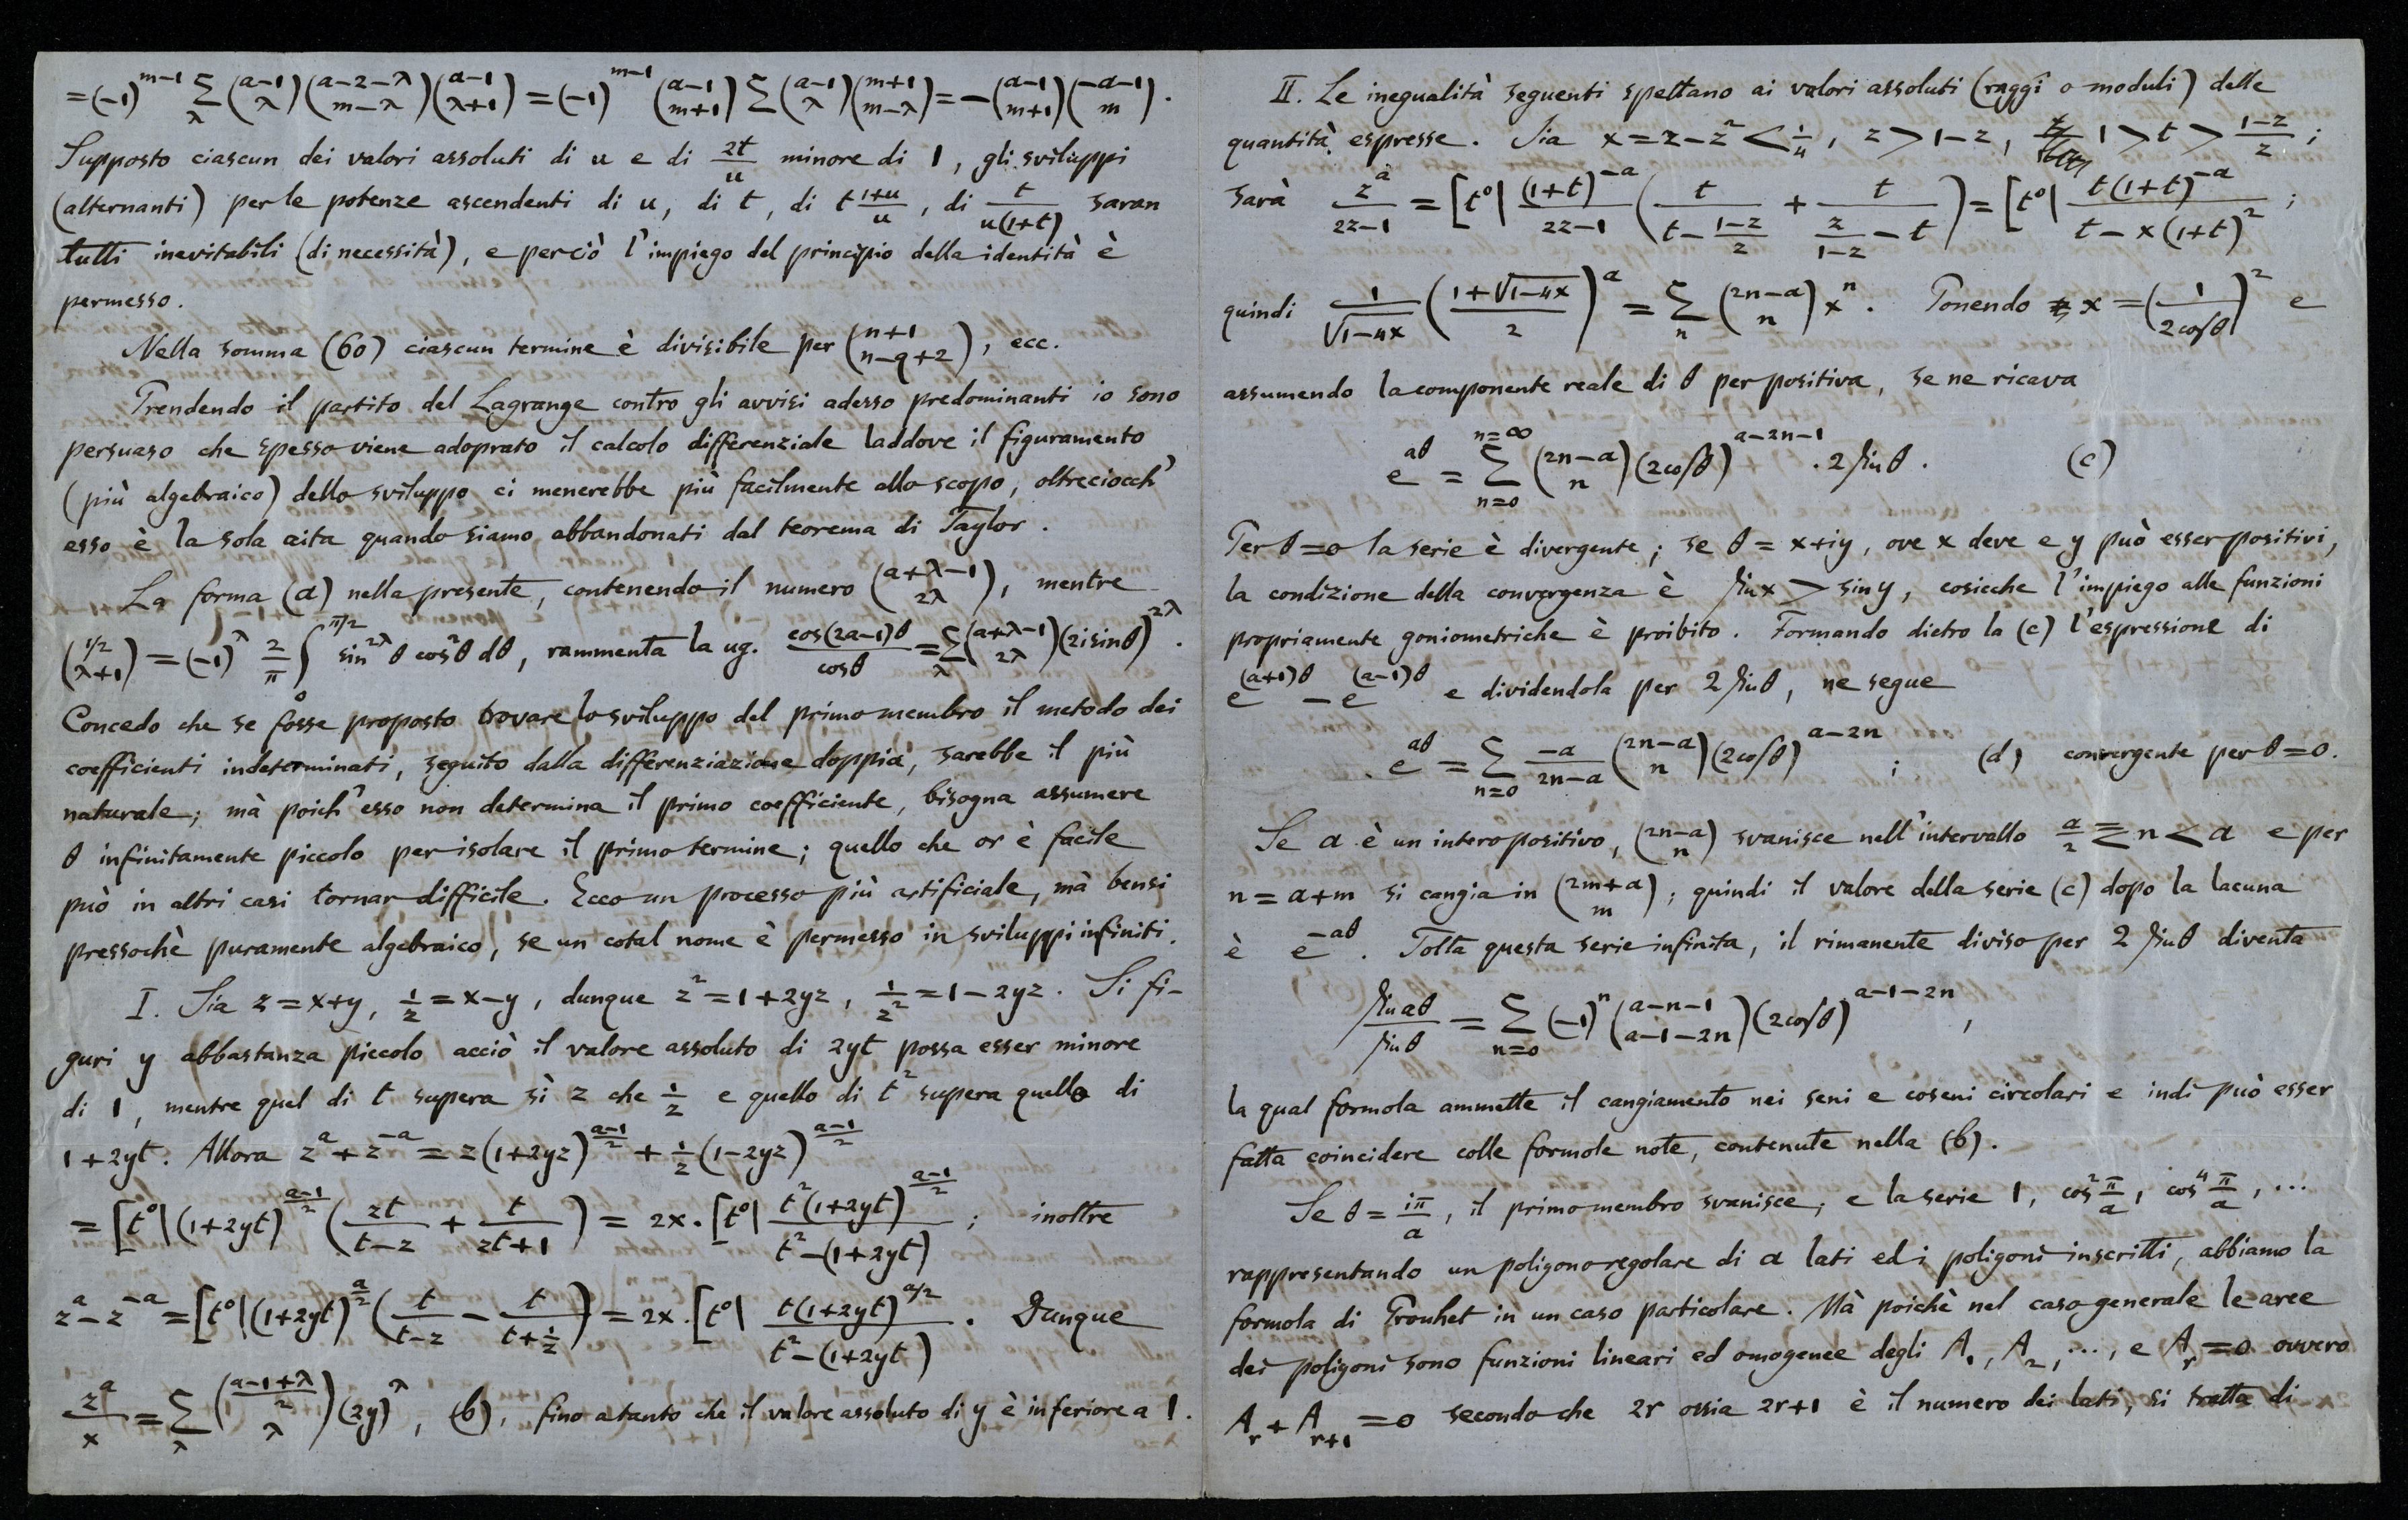 = (-1)^{m-1} Σ_λ (a-1 / λ)(a-2-λ / m-λ)(a-1 / λ+1) = (-1)^{m-1} (a-1 / m+1) Σ (a-1 / λ)(m+1 / m-λ) = -(a-1 / m+1)(-a-1 / m).
Supposto ciascun dei valori assoluti di u e di 2t/u minore di 1, gli sviluppi
(alternanti) per le potenze ascendenti di u, di t, di t (1+u)/u, di t/(u(1+t)) saran
tutti inevitabili (di necessità), e perciò l'impiego del principio della identità è
permesso.
Nella somma (60) ciascun termine è divisibile per (n+1 / n-q+2), ecc.
Prendendo il partito del Lagrange contro gli avvisi adesso predominanti io sono
persuaso che spesso viene adoprato il calcolo differenziale laddove il figuramento
(più algebraico) dello sviluppo ci menerebbe più facilmente allo scopo, oltreciocch'
esso è la sola aita quando siamo abbandonati dal teorema di Taylor.
La forma (a) nella presente, contenendo il numero (a+λ-1 / 2λ), mentre
(1/2 / λ+1) = (-1)^λ 2/π ∫_0^{π/2} sin^{2λ}θ cos²θ dθ, rammenta la ug. cos(2a-1)θ / cosθ = Σ_λ (a+λ-1 / 2λ)(2i sinθ)^{2λ}.
Concedo che se fosse proposto trovare lo sviluppo del primo membro il metodo dei
coefficienti indeterminati, seguito dalla differenziazione doppia, sarebbe il più
naturale; mà poich' esso non determina il primo coefficiente, bisogna assumere
θ infinitamente piccolo per isolare il primo termine; quello che or è facile
può in altri casi tornar difficile. Ecco un processo più artificiale, mà bensi
pressochè puramente algebraico, se un cotal nome è permesso in sviluppi infiniti.
I. Sia z = x+y, 1/z = x-y, dunque z² = 1+2yz, 1/z² = 1-2yz. Si fi-
guri y abbastanza piccolo acciò il valore assoluto di 2yt possa esser minore
di 1, mentre quel di t supera sì z che 1/z e quello di t² supera quello di
1+2yt. Allora z^a + z^{-a} = z(1+2yz)^{(a-1)/2} + 1/z (1-2yz)^{(a-1)/2}
= [t⁰| (1+2yt)^{(a-1)/2} (zt/(t-z) + t/(zt+1)) = 2x.[t⁰| t²(1+2yt)^{(a-1)/2} / (t²-(1+2yt)); inoltre
z^a - z^{-a} = [t⁰| (1+2yt)^{a/2} (t/(t-z) - t/(t+1/z)) = 2x.[t⁰| t(1+2yt)^{a/2} / (t²-(1+2yt)). Dunque
z^a/x = Σ_λ ((a-1+λ)/2 / λ)(2y)^λ, (b), fino a tanto che il valore assoluto di y è inferiore a 1.
II. Le inegualità seguenti spettano ai valori assoluti (raggi o moduli) delle
quantità espresse. Sia x = z-z² < 1/4, z > 1-z, 1 > t > (1-z)/z;
sarà z^a/(2z-1) = [t⁰| (1+t)^{-a}/(2z-1) (t/(t-(1-z)/z) + t/(z/(1-z)-t)) = [t⁰| t(1+t)^{-a} / (t-x(1+t)²);
quindi 1/√(1-4x) ((1+√(1-4x))/2)^a = Σ_n (2n-a / n) x^n. Ponendo x = (1/(2cosθ))² e
assumendo la componente reale di θ per positiva, se ne ricava
e^{aθ} = Σ_{n=0}^{n=∞} (2n-a / n)(2cosθ)^{a-2n-1} . 2 sinθ. (c)
Per θ=0 la serie è divergente; se θ = x+iy, ove x deve e y può esser positivi,
la condizione della convergenza è sin x > sin y, cosicche l'impiego alle funzioni
propriamente goniometriche è proibito. Formando dietro la (c) l'espressione di
e^{(a+1)θ} - e^{(a-1)θ} e dividendola per 2 sinθ, ne segue
e^{aθ} = Σ_{n=0} -a/(2n-a) (2n-a / n)(2cosθ)^{a-2n}; (d) convergente per θ=0.
Se a è un intero positivo, (2n-a / n) svanisce nell'intervallo a/2 ≦ n < a e per
n = a+m si cangia in (2m+a / m); quindi il valore della serie (c) dopo la lacuna
è e^{-aθ}. Tolta questa serie infinita, il rimanente diviso per 2 sinθ diventa
sin aθ / sinθ = Σ_{n=0} (-1)^n (a-n-1 / a-1-2n)(2cosθ)^{a-1-2n},
la qual formola ammette il cangiamento nei seni e coseni circolari e indi può esser
fatta coincidere colle formole note, contenute nella (b).
Se θ = iπ/a, il primo membro svanisce; e la serie 1, cos² π/a, cos⁴ π/a, ...
rappresentando un poligono regolare di a lati ed i poligoni inscritti, abbiamo la
formola di Prouhet in un caso particolare. Mà poichè nel caso generale le aree
dei poligoni sono funzioni lineari ed omogenee degli A₁, A₂, ..., e A_r = 0 ovvero
A_r + A_{r+1} = 0 secondo che 2r ossia 2r+1 è il numero dei lati, si tratta di